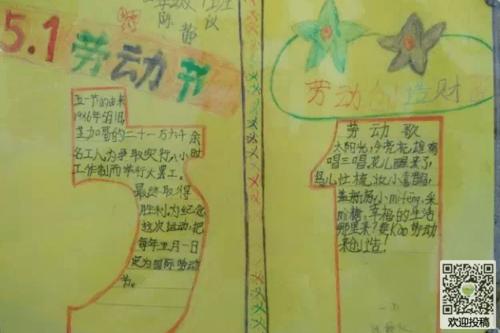 二年级 1班
陈静仪
5.1劳动节
五一节的由来
1886年5月1日,
芝加哥的二十一万六千余
名工人为争取实行八小时
工作制而举行大罢工。
最终取得
胜利,为纪念
这次运动,把
每年五月一日
定为国际劳动
节。
劳动创造财
劳动歌
太阳光,冷亮亮,雄鸡
唱三唱。花儿醒来了,
鸟儿忙梳妆,小喜鹊,
盖新房,小mifeng,采
mi糖,幸福的生活
哪里来?要kao劳动
来创造!
欢迎投稿